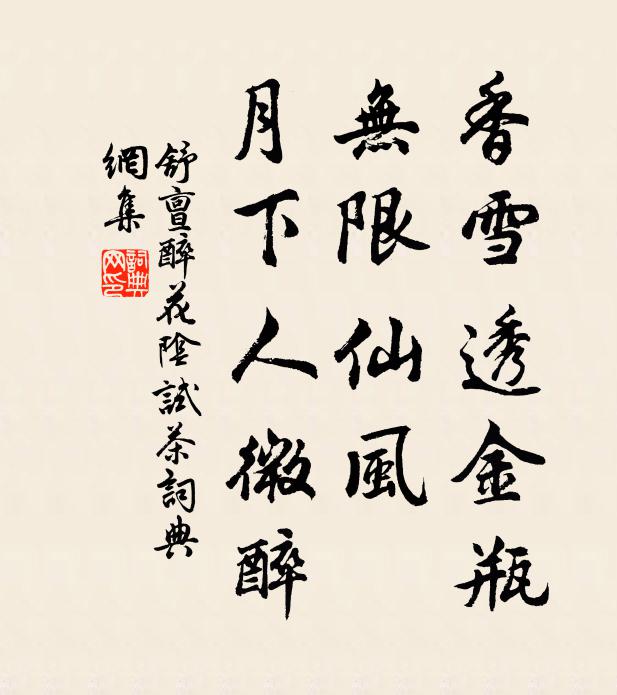 香雪透金瓶
無限仙風
月下人微醉
舒亶醉花陰試茶詞典
網集
詞典
网印